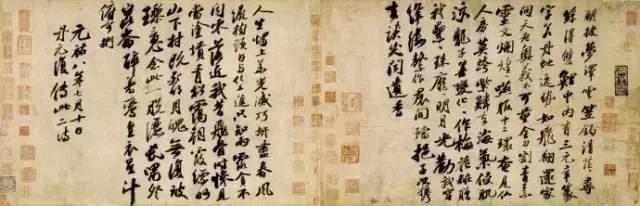 朝披夢澤雲笠釣清茫茫尋
絲得雙鯉中内有三元章篆
字若丹虵逸勢如飛翔還家
問天老奧義不可量金刀割青素
靈文爛煌煌嚥服十二環奄見仙
人房暮跨紫鱗去海氣侵肌
涼龍子善變化化作梅花妝贈
我纍纍珠靡靡明月光勸我穿
絳縷繫作裙間璫挹子以攜
去談笑聞遺香
人生燭上華光滅巧妍盡春風
遶樹頭日與化工進只知雨露貪不
聞零落近我昔飛骨時慘見
當塗墳青松靄朝霞縹緲
山下村既死明月魄無復玻
璃魂念此一脫灑長嘯登
崑崙醉着鸞皇衣星斗
俯可捫
元祐八年七月十日
丹元復傳此二詩